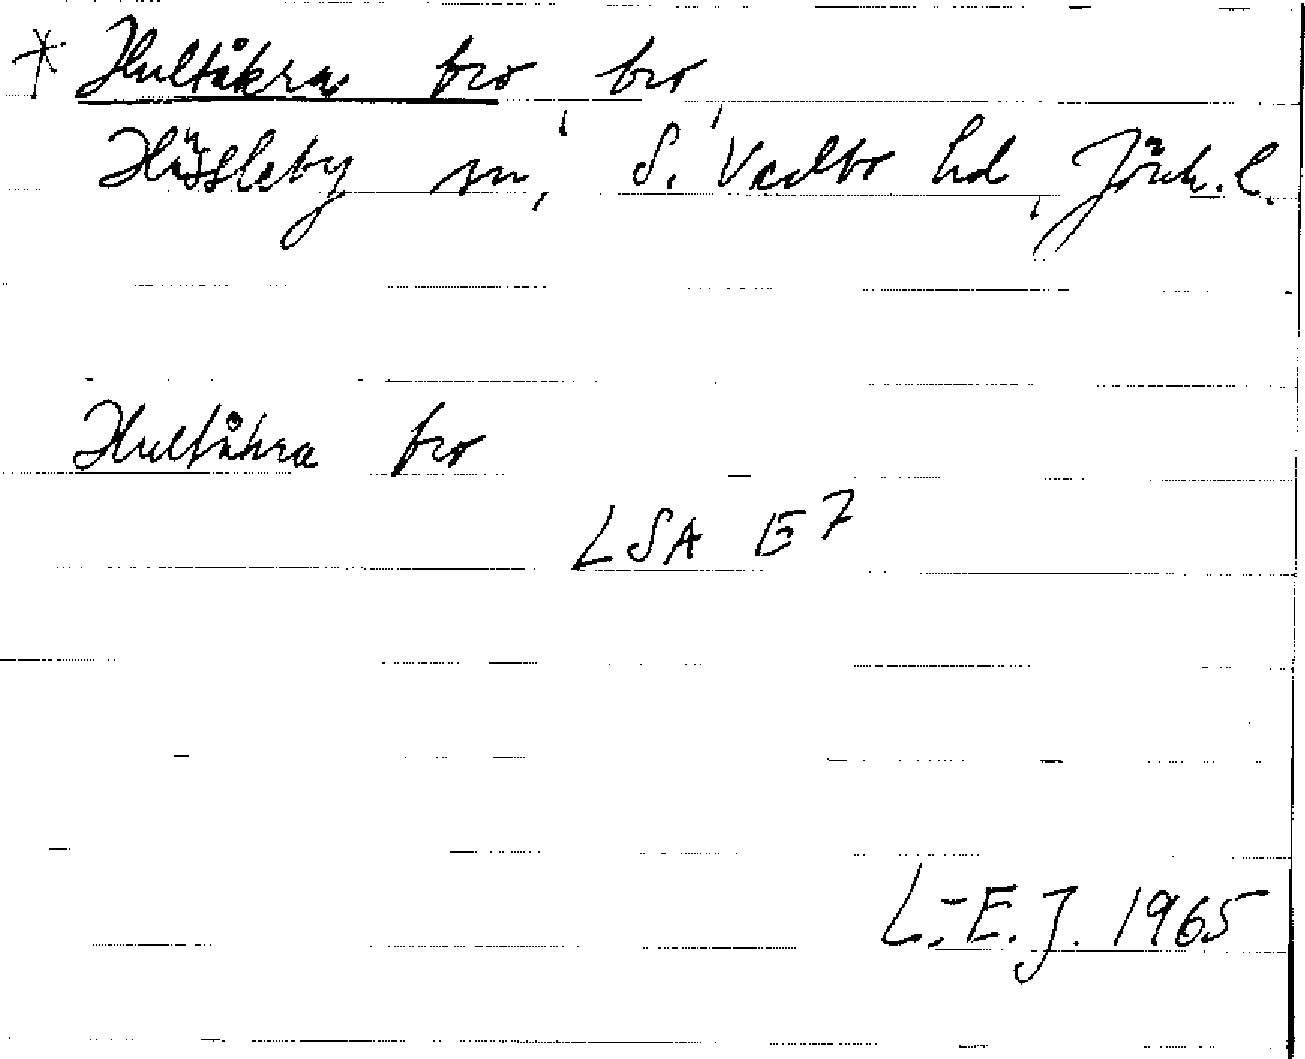 * Hultåkra bro bro
Hässleby sn, S. Vedbo hd, Jönk. l.
Hultåkra bro
LSA E7
L.-E. J. 1965